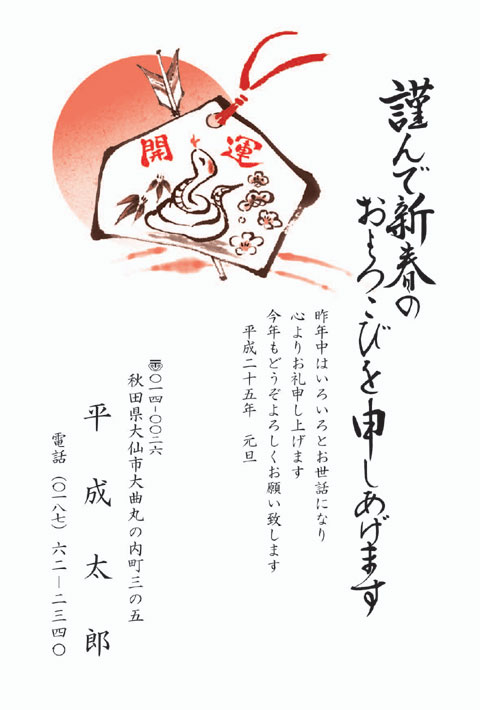 開運
謹んで新春の
およろこびを申しあげます
昨年中はいろいろとお世話になり
心よりお礼申し上げます
今年もどうぞよろしくお願い致します
平成二十五年　元旦
〒〇一四-〇〇二六
秋田県大仙市大曲丸の内町三の五
平成太郎
電話（〇一八七）六二―二三四〇